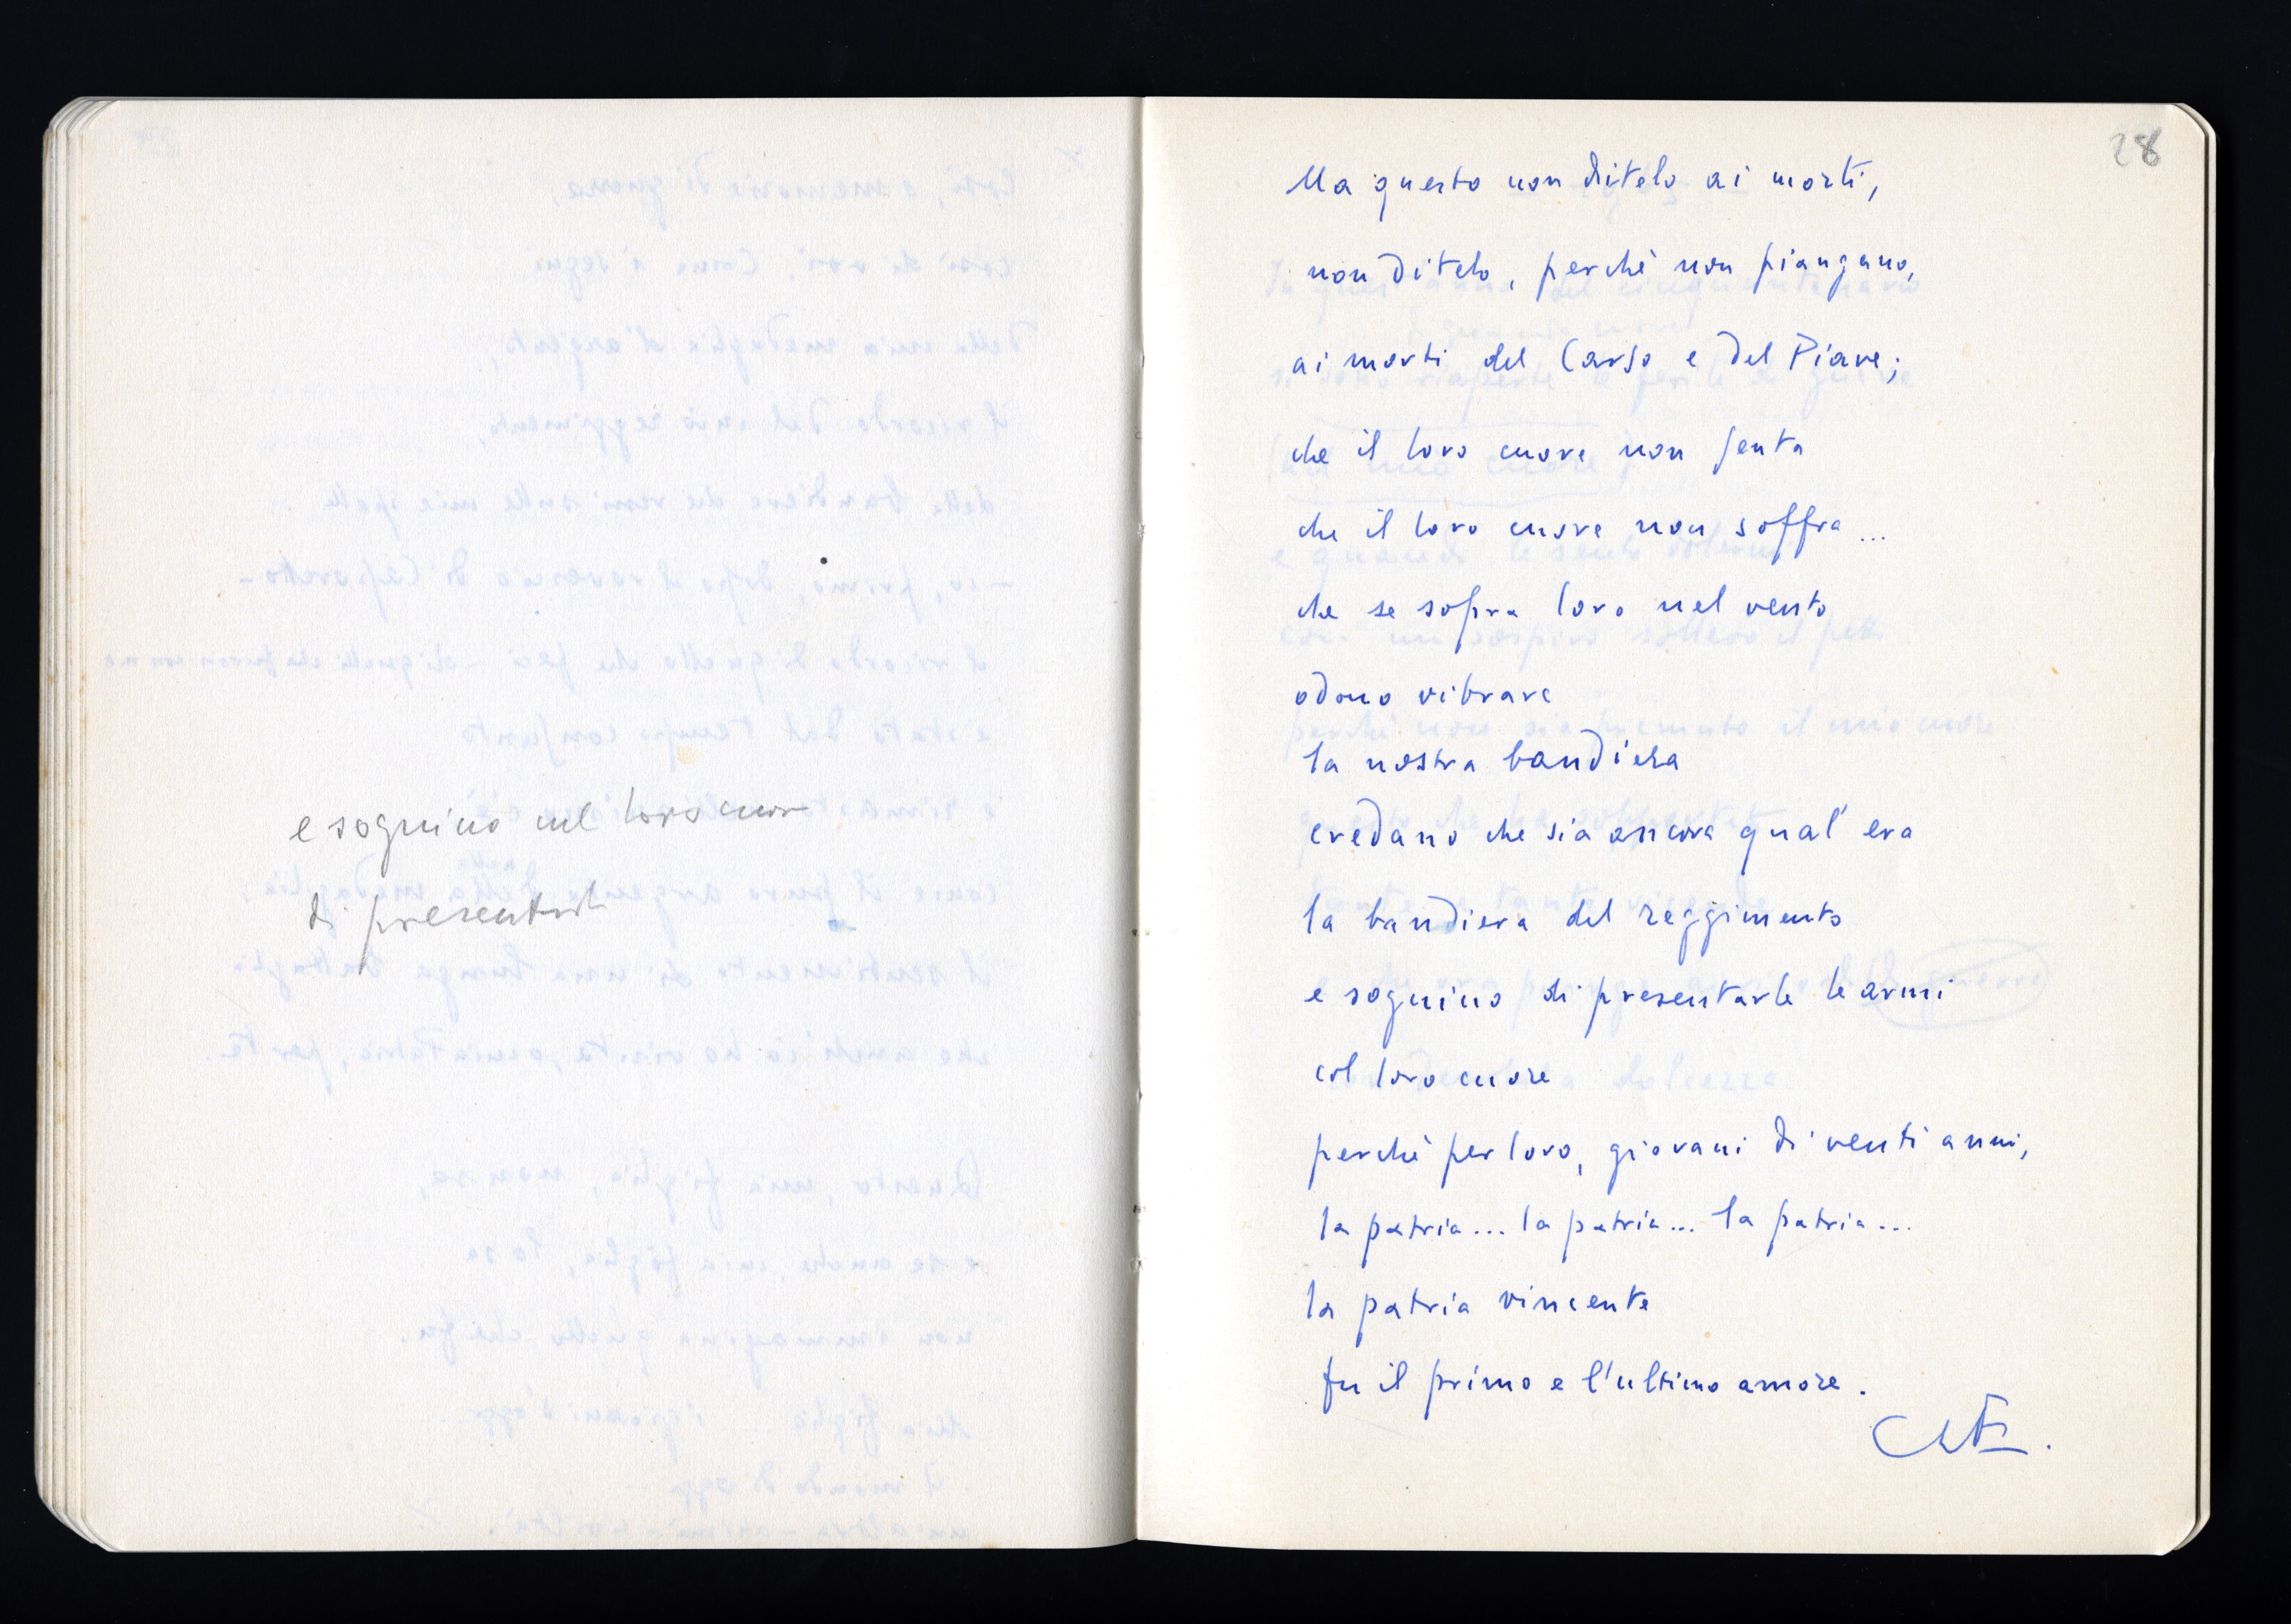 e sognino nel loro cuore
di presentarle
28
Ma questo non ditelo ai morti,
non ditelo, perchè non piangano,
ai morti del Carso e del Piave;
che il loro cuore non senta
che il loro cuore non soffra ...
che se sopra loro nel vento
odono vibrare
la nostra bandiera
credano che sia ancora qual' era
la bandiera del reggimento
e sognino di presentarle le armi
col loro cuore
perchè per loro, giovani di venti anni,
la patria ... la patria ... la patria ...
la patria vincente
fu il primo e l'ultimo amore.